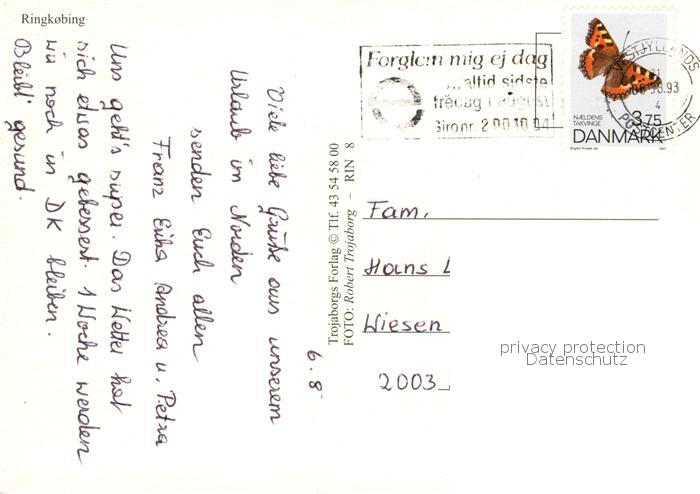 Ringkøbing
6.8
Viele liebe Grüße aus unserem
Urlaub im Norden
senden Euch allen
Franz Erika Andrea u. Petra
Uns geht's super. Das Wetter hat
sich etwas gebessert. 1 Woche werden
wir noch in DK bleiben.
Bleibt gesund.
Trojaborgs Forlag © Tlf. 43 54 58 00
FOTO: Robert Trojaborg – RIN 8
Forglem mig ej dag
altid sidste
fredag i august
Gironr. 2 00 10 04
NÆLDENS
TAKVINGE
3.75
DANMARK
POSTCENTER
Fam.
Hans L
Wiesen
2003
privacy protection
Datenschutz